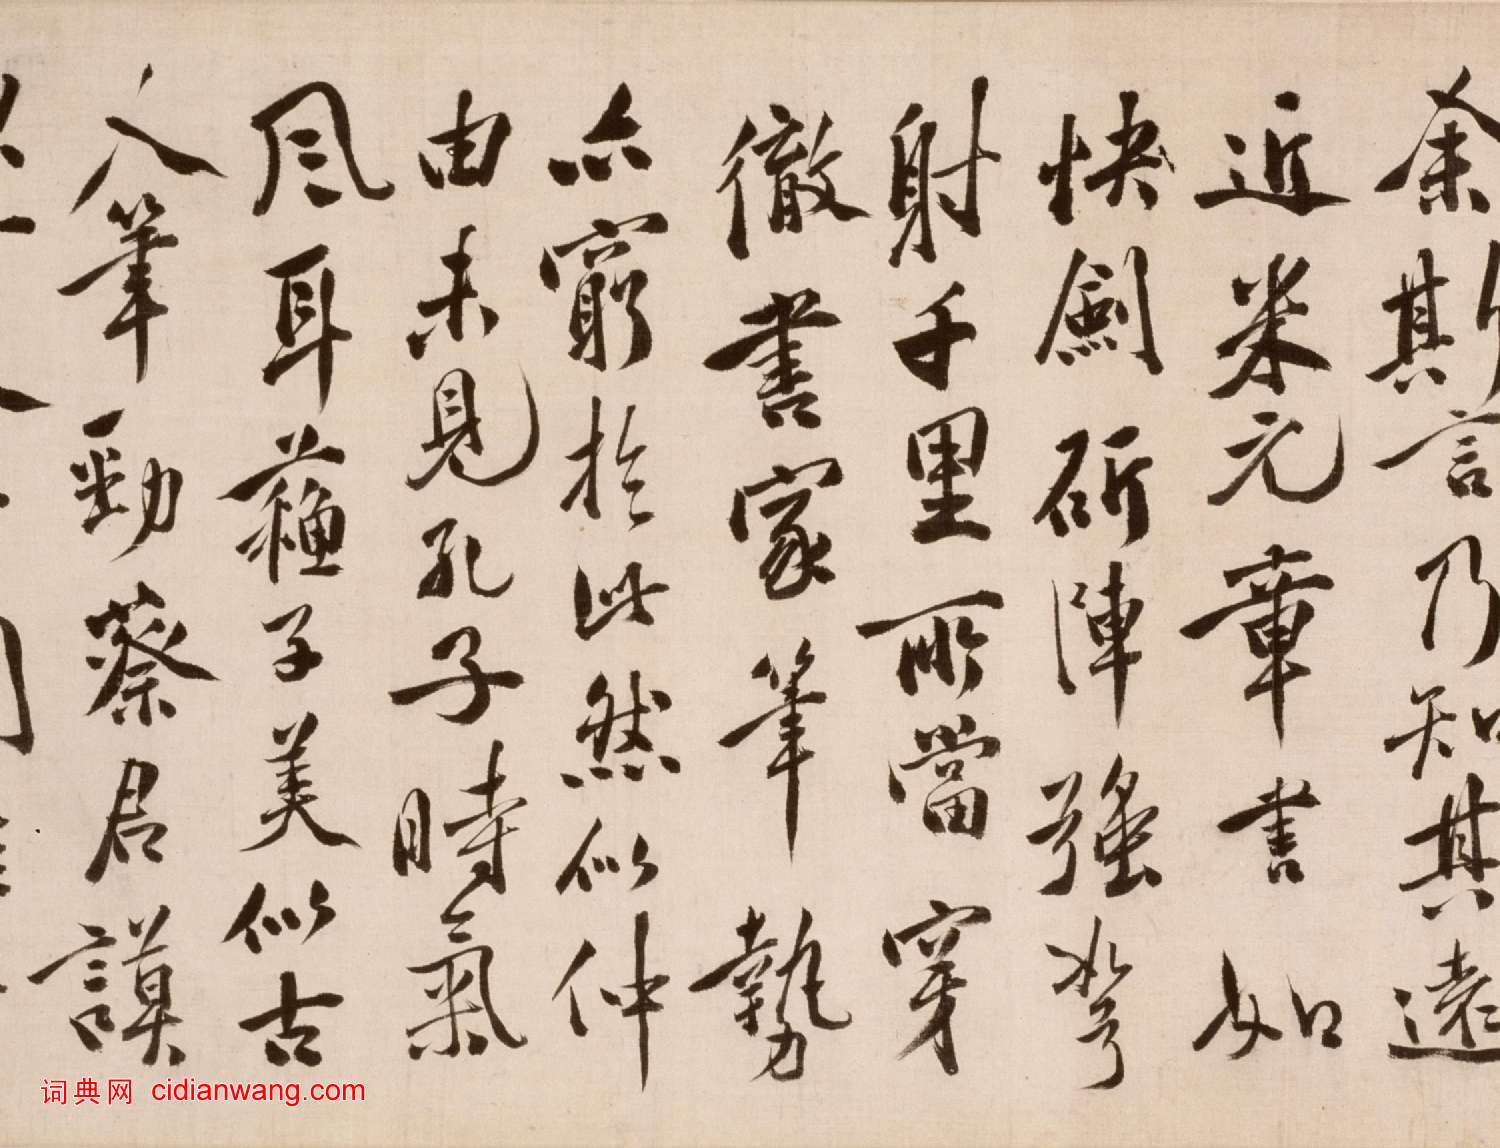 余斯言乃知其遠
近米元章書如
快劍斫陣強弩
射千里所當穿
徹書家筆勢
亦窮於此然似仲
由未見孔子時氣
風耳蘓子美似古
入筆勁蔡君謨
词典网 cidianwang.com